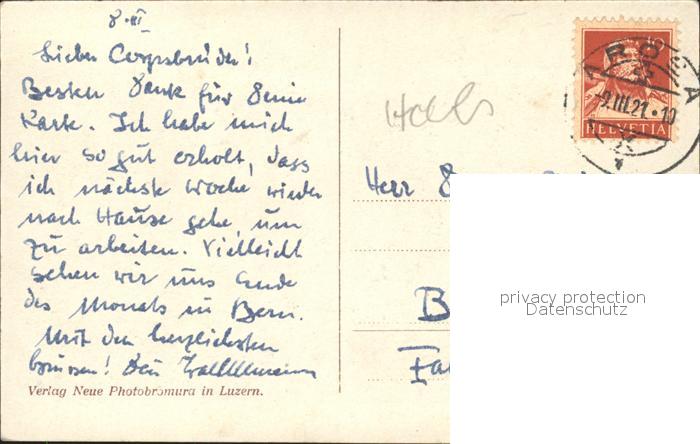 8.III
Lieber Corpsbruder!
Besten Dank für Deine
Karte. Ich habe mich
hier so gut erholt, dass
ich nächste Woche wieder
nach Hause gehe, um
zu arbeiten. Vielleicht
sehen wir uns Ende
des Monats in Bern.
Mit den herzlichsten
Grüssen! Dein
Verlag Neue Photobromura in Luzern.
10
HELVETIA
AROSA
-9.III.21.-10
Herr
B
Fa
privacy protection
Datenschutz